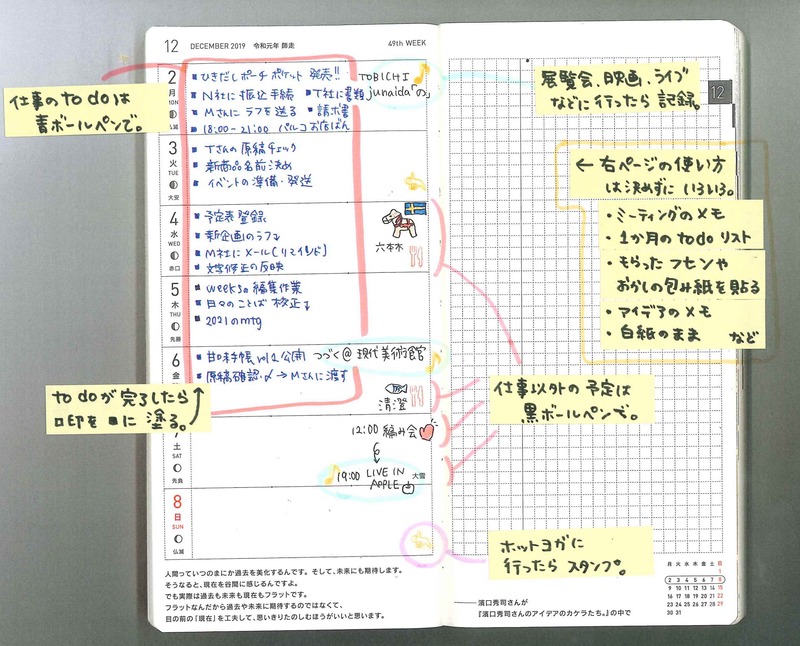 12 DECEMBER 2019 令和元年 師走 49th WEEK
2
月
MON
仏滅
ひきだしポーチ ポケット 発売!!
N社に振込手続 T社に書類
Mさんにラフを送る 請求書
18:00-21:00 パルコお店ばん
TOBICHI
junaida「の」
3
火
TUE
大安
Tさんの原稿チェック
新商品名前決め
イベントの準備・発送
4
水
WED
赤口
予定表登録
新企画のラフ
M社にメール(リマインド)
文字修正の反映
六本木
5
木
THU
先勝
weeksの編集作業
日々のことば 校正
2021のmtg
6
金
甘口手帳vol2公開
原稿確認〆→Mさんに渡す
つづく@現代美術館
清澄
7
土
SAT
先負
12:00 編み会
19:00 LIVE IN
APPLE
大雪
8
日
SUN
仏滅
人間っていつのまにか過去を美化するんです。そして、未来にも期待します。
そうなると、現在を谷間に感じるんですよ。
でも実際は過去も未来も現在もフラットです。
フラットなんだから過去や未来に期待するのではなくて、
目の前の「現在」を工夫して、思いきりたのしむほうがいいと思います。
仕事のto doは
青ボールペンで。
to doが完了したら
□印を■に塗る。
展覧会、映画、ライブ
などに行ったら記録。
12
← 右ページの使い方
は決めずにいろいろ。
・ミーティングのメモ
・1か月のto doリスト
・もらったフセンや
おかしの包み紙を貼る
・アイデアのメモ
・白紙のまま など
仕事以外の予定は
黒ボールペンで。
ホットヨガに
行ったらスタンプ。
月 火 水 木 金 土 日
1
2 3 4 5 6 7 8
9 10 11 12 13 14 15
16 17 18 19 20 21 22
23 24 25 26 27 28 29
30 31
——濱口秀司さんが
『濱口秀司さんのアイデアのカケラたち。』の中で